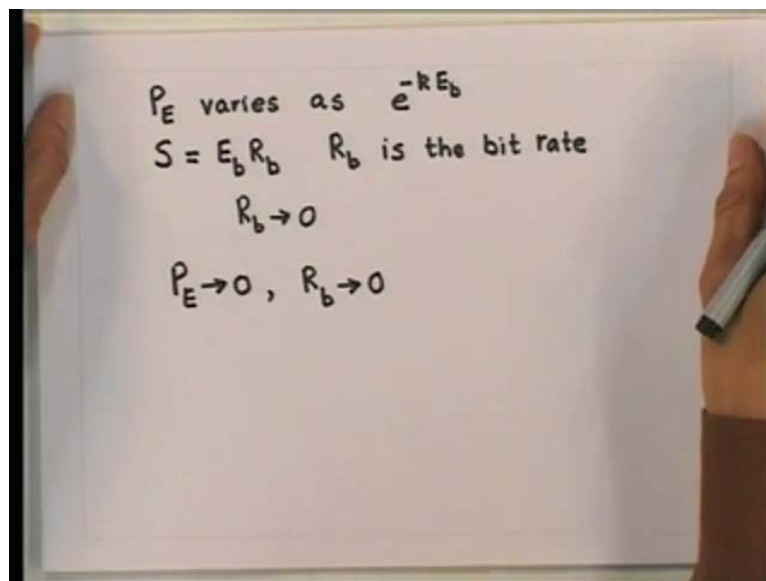 P_E varies as e^{-kE_b}
S = E_b R_b   R_b is the bit rate
R_b → 0
P_E → 0 , R_b → 0